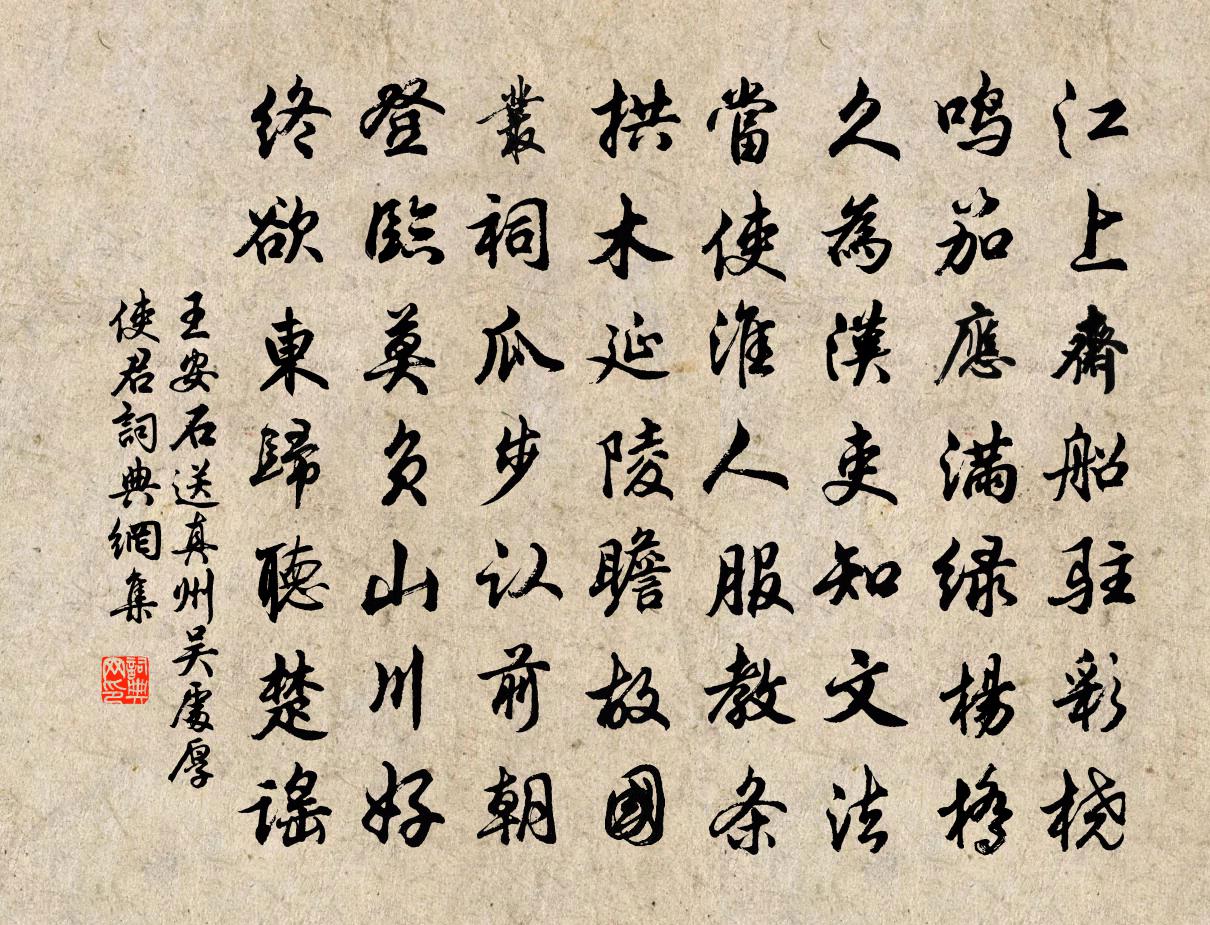 江上齋船駐彩橈
鳴笳應滿綠楊橋
久為漢吏知文法
當使淮人服教条
拱木延陵瞻故國
叢祠瓜步认前朝
登臨莫負山川好
終欲東歸聽楚謠
王安石送真州吴處厚
使君詞典網集
詞典
网印